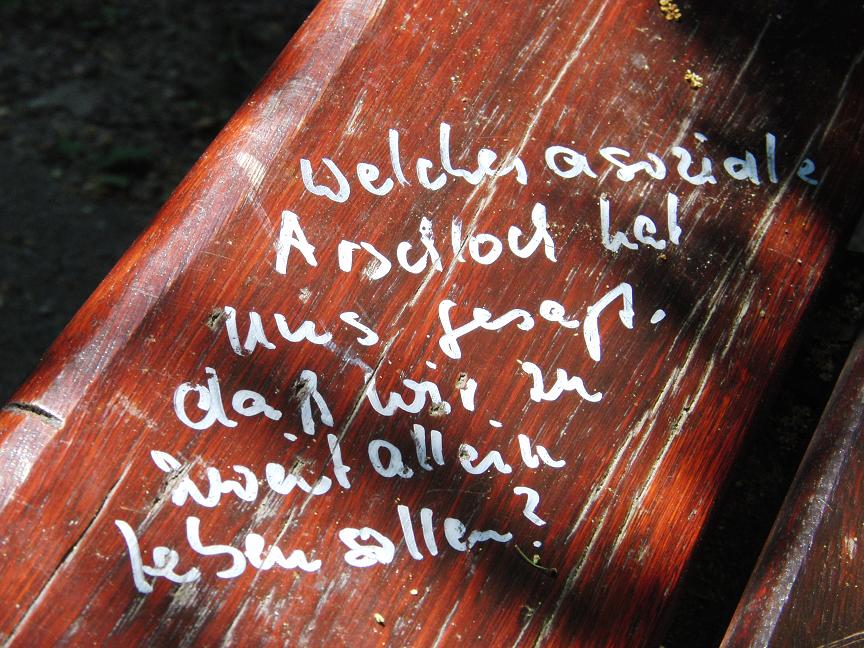 Welches asoziale
Arschloch hat
uns gesagt,
daß wir zu
zweit allein
Leben sollen?